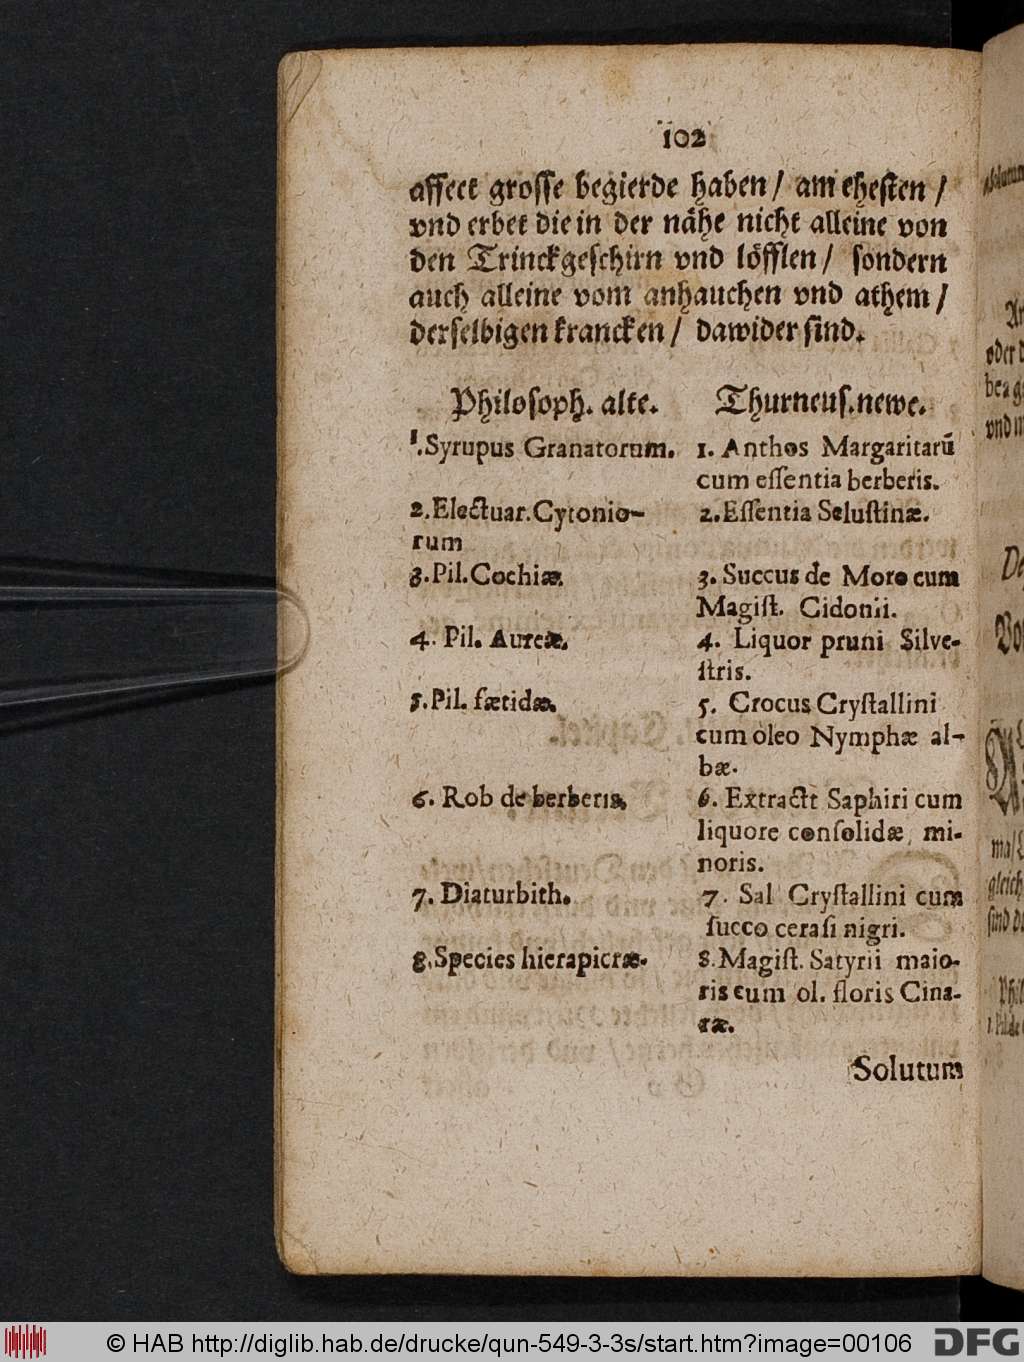 102
affect grosse begierde haben / am ehesten /
vnd erbet die in der nähe nicht alleine von
den Trinckgeschirn vnd löfflen / sondern
auch alleine vom anhauchen vnd athem /
derselbigen krancken / dawider sind.
Philosoph. alte.
1.Syrupus Granatorum.
2.Electuar.Cytonio-
rum
3.Pil.Cochiæ.
4. Pil. Aureæ.
5.Pil. fætidæ.
6. Rob de berberis.
7. Diaturbith.
8.Species hierapicræ.
Thurneus.newe.
1. Anthos Margaritarũ
cum essentia berberis.
2.Essentia Selustinæ.
3. Succus de Moro cum
Magist. Cidonii.
4. Liquor pruni Silve-
stris.
5. Crocus Crystallini
cum oleo Nymphæ al-
bæ.
6. Extractt Saphiri cum
liquore consolidæ mi-
noris.
7. Sal Crystallini cum
succo cerasi nigri.
8.Magist. Satyrii maio-
ris cum ol. floris Cina-
ræ.
Solutum
© HAB http://diglib.hab.de/drucke/qun-549-3-3s/start.htm?image=00106
DFG